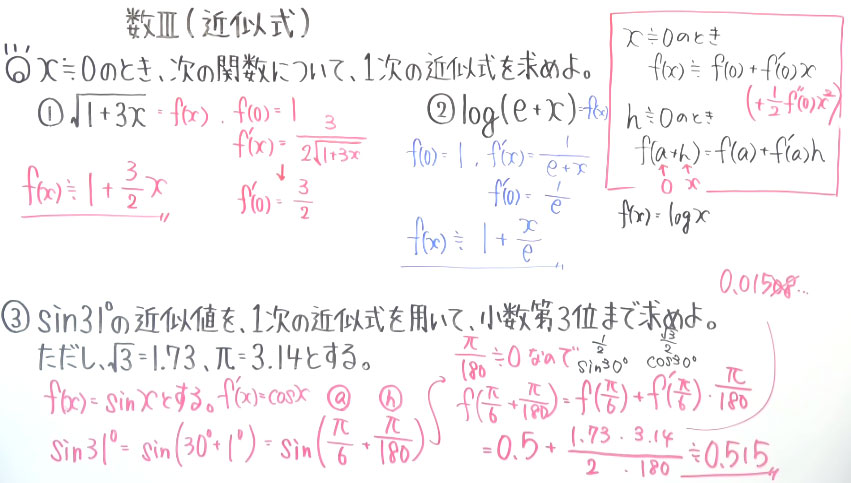 数Ⅲ(近似式)
◎ x≒0のとき、次の関数について、1次の近似式を求めよ。
① √(1+3x) = f(x). f(0)=1
f'(x)= 3/(2√(1+3x))
↓
f'(0)= 3/2
f(x)≒1+(3/2)x
② log(e+x)=f(x)
f(0)=1, f'(x)= 1/(e+x)
f'(0)= 1/e
f(x)≒1+x/e
x≒0のとき
f(x)≒f(0)+f'(0)x
(+(1/2)f''(0)x²)
h≒0のとき
f(a+h)=f(a)+f'(a)h
↑ ↑
0 x
f(x)=log x
③ sin31°の近似値を、1次の近似式を用いて、小数第3位まで求めよ。
ただし、√3=1.73、π=3.14とする。
f(x)=sinxとする。f'(x)=cosx ⓐ ⓗ
sin31°=sin(30°+1°)=sin(π/6+π/180)
π/180≒0なので
1/2 √3/2
sin30° cos30°
f(π/6+π/180)=f(π/6)+f'(π/6)・π/180
=0.5+(1.73・3.14)/(2・180)≒0.515
0.01508...